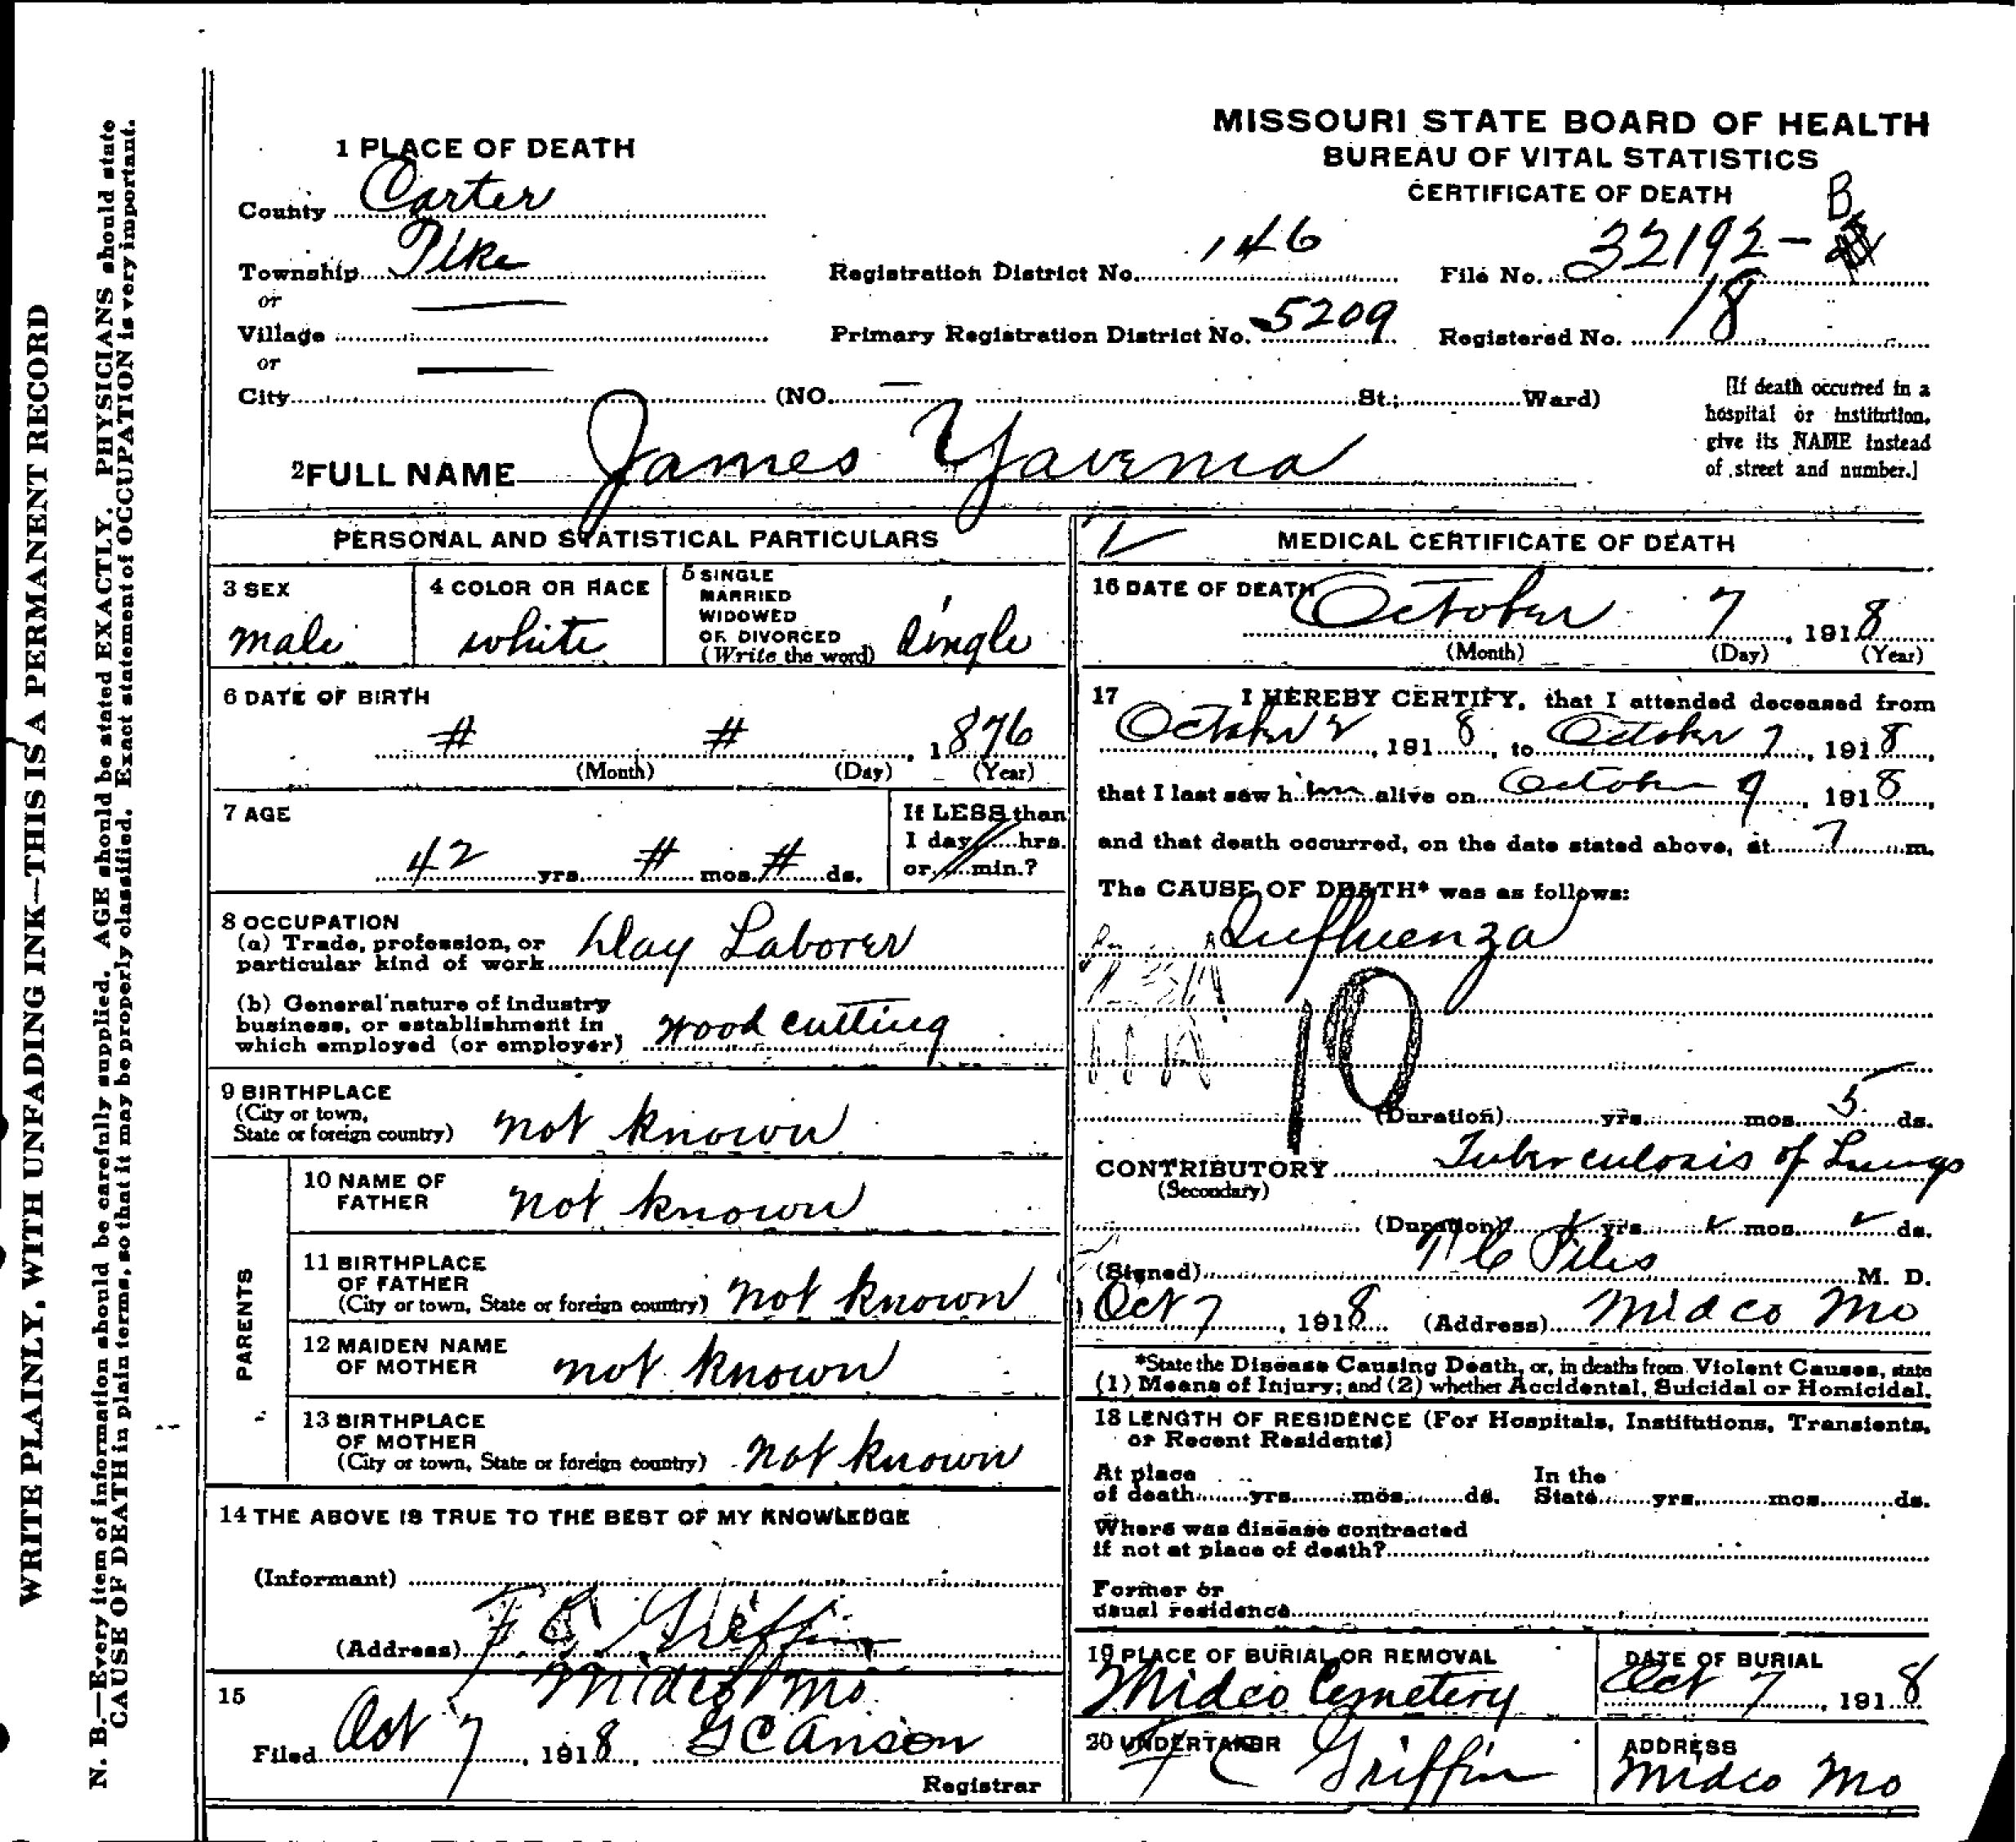 MISSOURI STATE BOARD OF HEALTH
BUREAU OF VITAL STATISTICS
CERTIFICATE OF DEATH
1 PLACE OF DEATH
County Carter
Township Pike
or
Village
or
City (NO. St.; Ward)
Registration District No. 146
File No. 32192- B
Primary Registration District No. 5209
Registered No. 18
[If death occurred in a
hospital or institution,
give its NAME instead
of street and number.]
2 FULL NAME James Yavenia
PERSONAL AND STATISTICAL PARTICULARS
3 SEX
male
4 COLOR OR RACE
white
5 SINGLE
MARRIED
WIDOWED
OR DIVORCED
(Write the word) single
6 DATE OF BIRTH
# # , 1876
(Month) (Day) (Year)
7 AGE
42 yrs. # mos. # ds.
If LESS than
1 day, hrs.
or min.?
8 OCCUPATION
(a) Trade, profession, or
particular kind of work Day Laborer
(b) General nature of industry
business, or establishment in
which employed (or employer) wood cutting
9 BIRTHPLACE
(City or town,
State or foreign country) not known
PARENTS
10 NAME OF
FATHER not known
11 BIRTHPLACE
OF FATHER
(City or town, State or foreign country) not known
12 MAIDEN NAME
OF MOTHER not known
13 BIRTHPLACE
OF MOTHER
(City or town, State or foreign country) not known
14 THE ABOVE IS TRUE TO THE BEST OF MY KNOWLEDGE
(Informant)
F C Griffin
(Address)
Midco Mo
15
Filed Oct 7, 1918, G C Anson
Registrar
MEDICAL CERTIFICATE OF DEATH
16 DATE OF DEATH October 7, 1918
(Month) (Day) (Year)
17 I HEREBY CERTIFY, that I attended deceased from
October 2, 1918, to October 7, 1918,
that I last saw him alive on October 9, 1918,
and that death occurred, on the date stated above, at 7 m.
The CAUSE OF DEATH* was as follows:
Influenza
10
(Duration) yrs. mos. 5 ds.
CONTRIBUTORY Tuberculosis of Lungs
(Secondary)
(Duration) yrs. mos. ds.
(Signed) Piles M. D.
Oct 7, 1918 (Address) Midco Mo
*State the Disease Causing Death, or, in deaths from Violent Causes, state
(1) Means of Injury; and (2) whether Accidental, Suicidal or Homicidal.
18 LENGTH OF RESIDENCE (For Hospitals, Institutions, Transients,
or Recent Residents)
At place
of death yrs. mos. ds.
In the
State yrs. mos. ds.
Where was disease contracted
if not at place of death?
Former or
usual residence
19 PLACE OF BURIAL OR REMOVAL
Midco Cemetery
DATE OF BURIAL
Oct 7, 1918
20 UNDERTAKER
F C Griffin
ADDRESS
Midco Mo
WRITE PLAINLY, WITH UNFADING INK—THIS IS A PERMANENT RECORD
N. B.—Every item of information should be carefully supplied. AGE should be stated EXACTLY. PHYSICIANS should state
CAUSE OF DEATH in plain terms, so that it may be properly classified. Exact statement of OCCUPATION is very important.